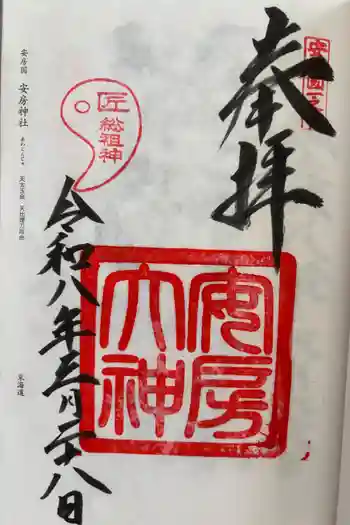 奉拝
安房國一之宮
安房大神
匠
総祖神
令和八年三月二十八日
安房国 安房神社
東海道